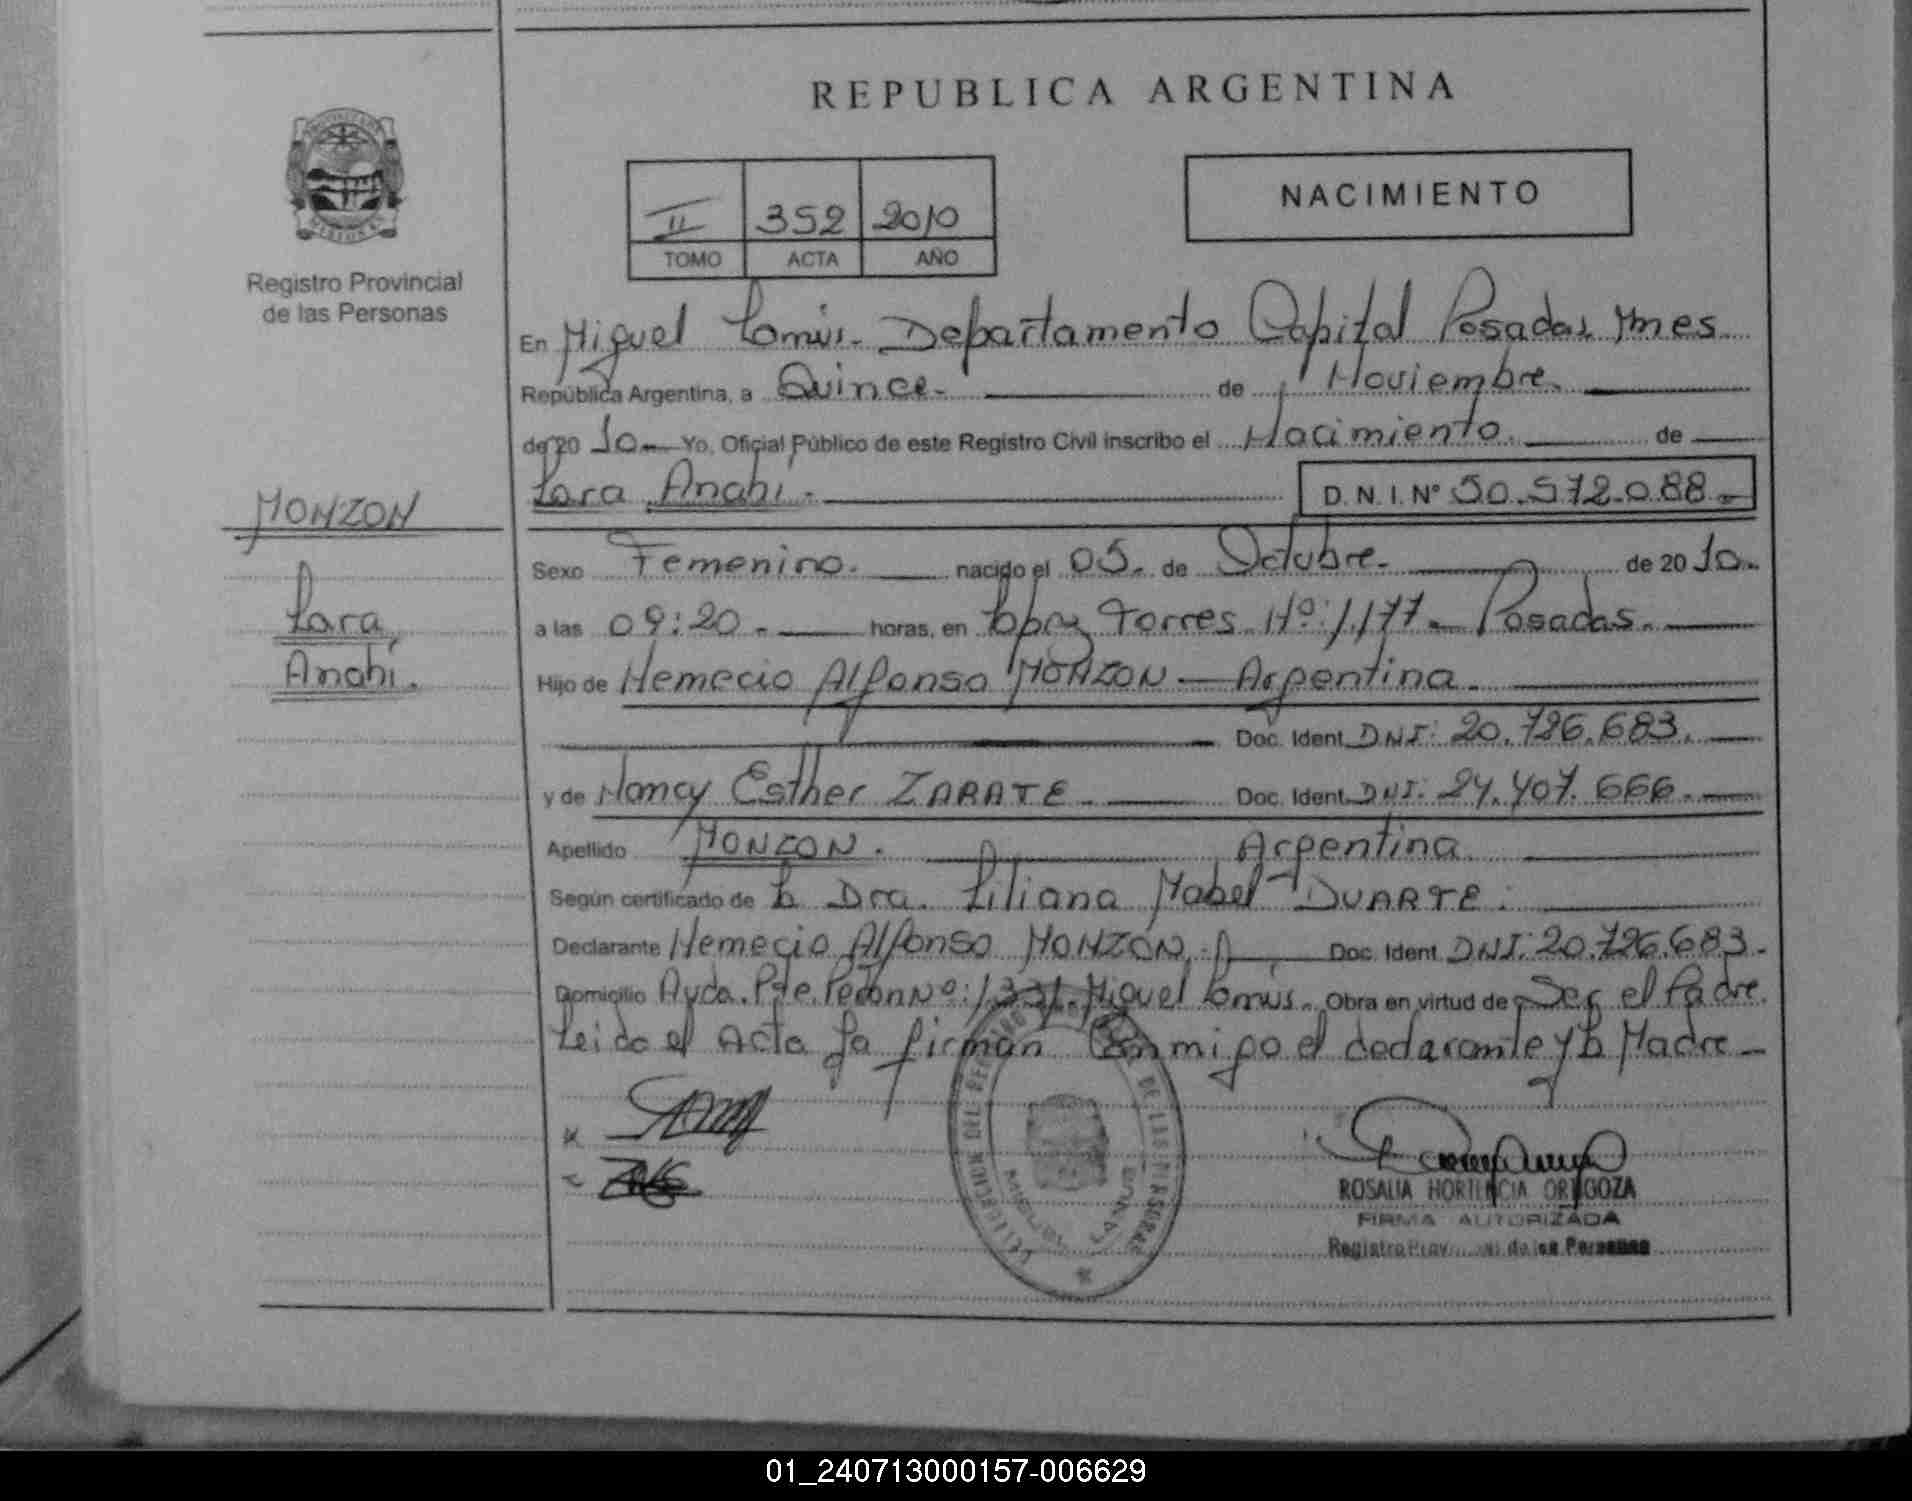 REPUBLICA ARGENTINA
II 352 2010
TOMO ACTA AÑO
NACIMIENTO
Registro Provincial
de las Personas
MONZON
Lara
Anahi.
En Miguel Lanús. Departamento Capital Posadas Mnes
República Argentina, a Quince. de Noviembre.
de 20 10 Yo, Oficial Público de este Registro Civil inscribo el Nacimiento. de
Lara Anahi. D.N.I. Nº 50.572.088.
Sexo Femenino. nacido el 05. de Octubre. de 20 10.
a las 09:20. horas, en López Torres Nº: 1.177. Posadas.
Hijo de Nemecio Alfonso MONZON Argentina.
Doc. Ident. DNI: 20.726.683.
y de Nancy Esther ZARATE. Doc. Ident. DNI: 24.407.666.
Apellido MONZON. Argentina
Según certificado de la Dra. Liliana Mabel DUARTE.
Declarante Nemecio Alfonso MONZON. Doc. Ident. DNI: 20.726.683.
Domicilio Avda. Pte. Perón Nº: 1331. Miguel Lanús. Obra en virtud de Ser el Padre.
Leido el Acta la firman Conmigo el declarante y la Madre
ROSALIA HORTENCIA ORIGOZA
FIRMA AUTORIZADA
Registro de las Personas
01_240713000157-006629